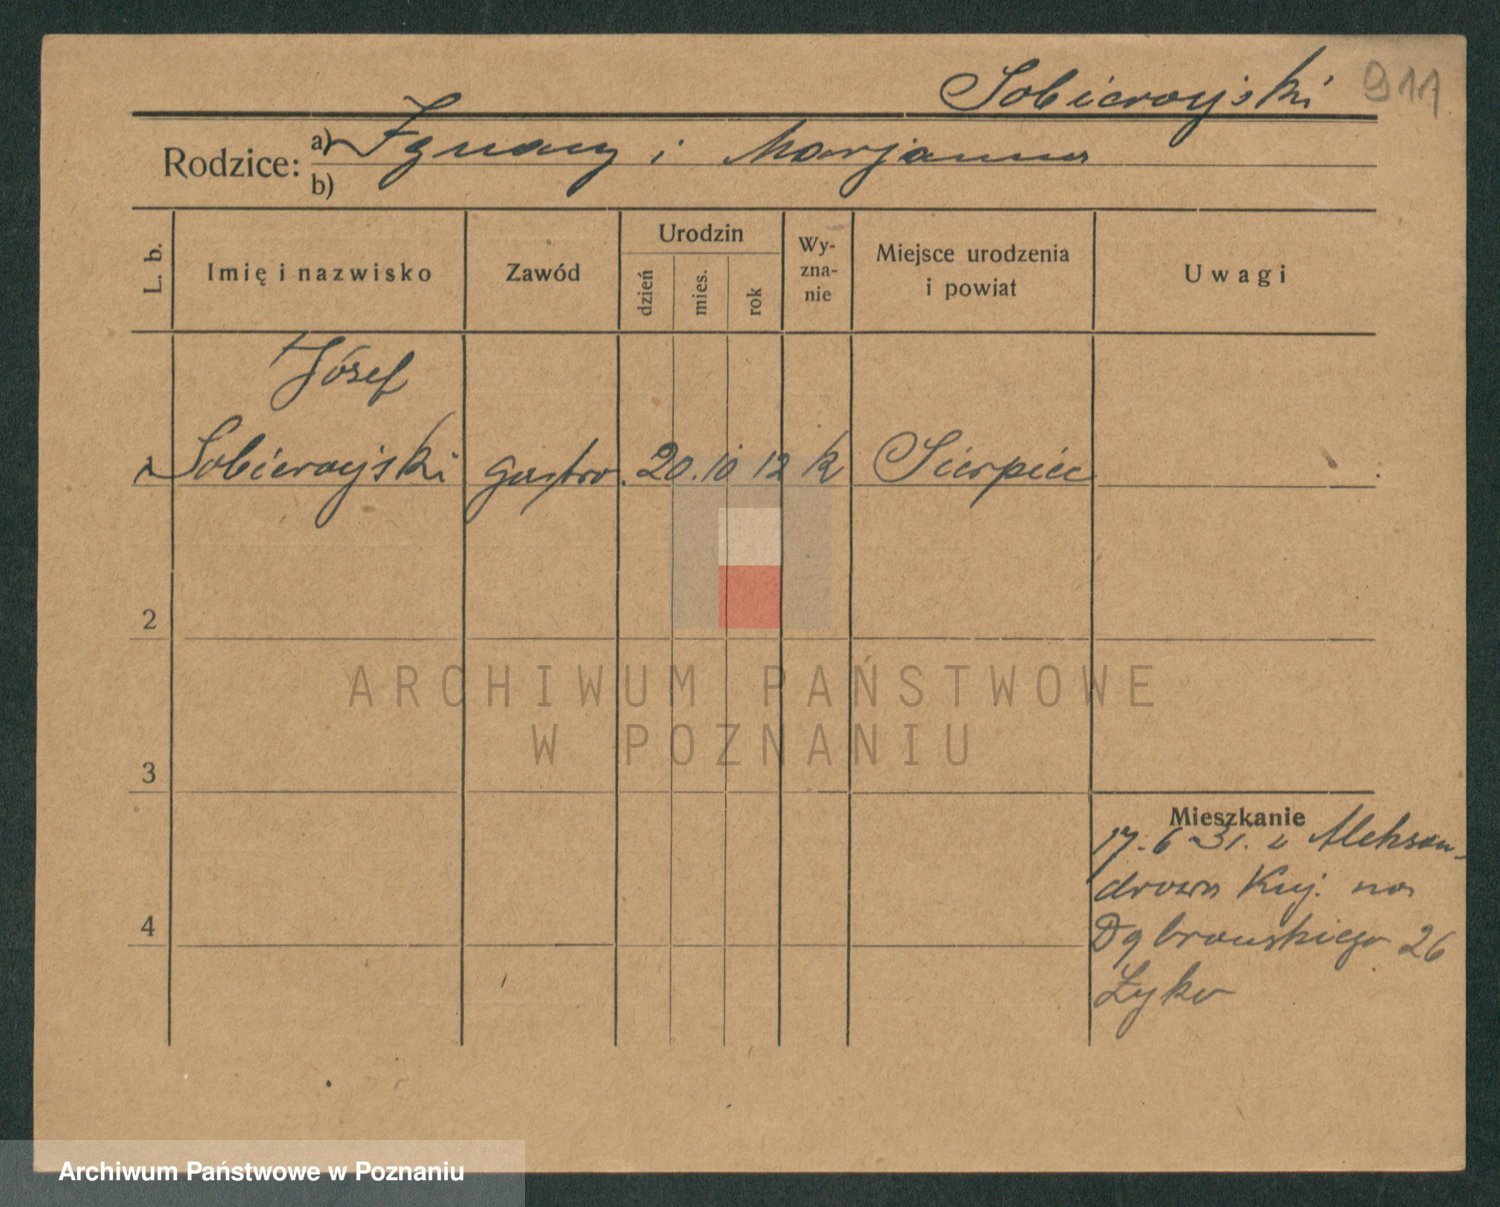 Sobierajski 911
Rodzice: a) Ignacy i Marjanna
b)
L. b. Imię i nazwisko Zawód Urodzin dzień mies. rok Wy-zna-nie Miejsce urodzenia i powiat Uwagi
Józef
1 Sobierajski gastro. 20. 10 12 k Sierpiec
2
3
4
Mieszkanie
17. 6 31. z Aleksan-
drowa Kuj. na
Dąbrowskiego 26
Żyko
ARCHIWUM PAŃSTWOWE
W POZNANIU
Archiwum Państwowe w Poznaniu